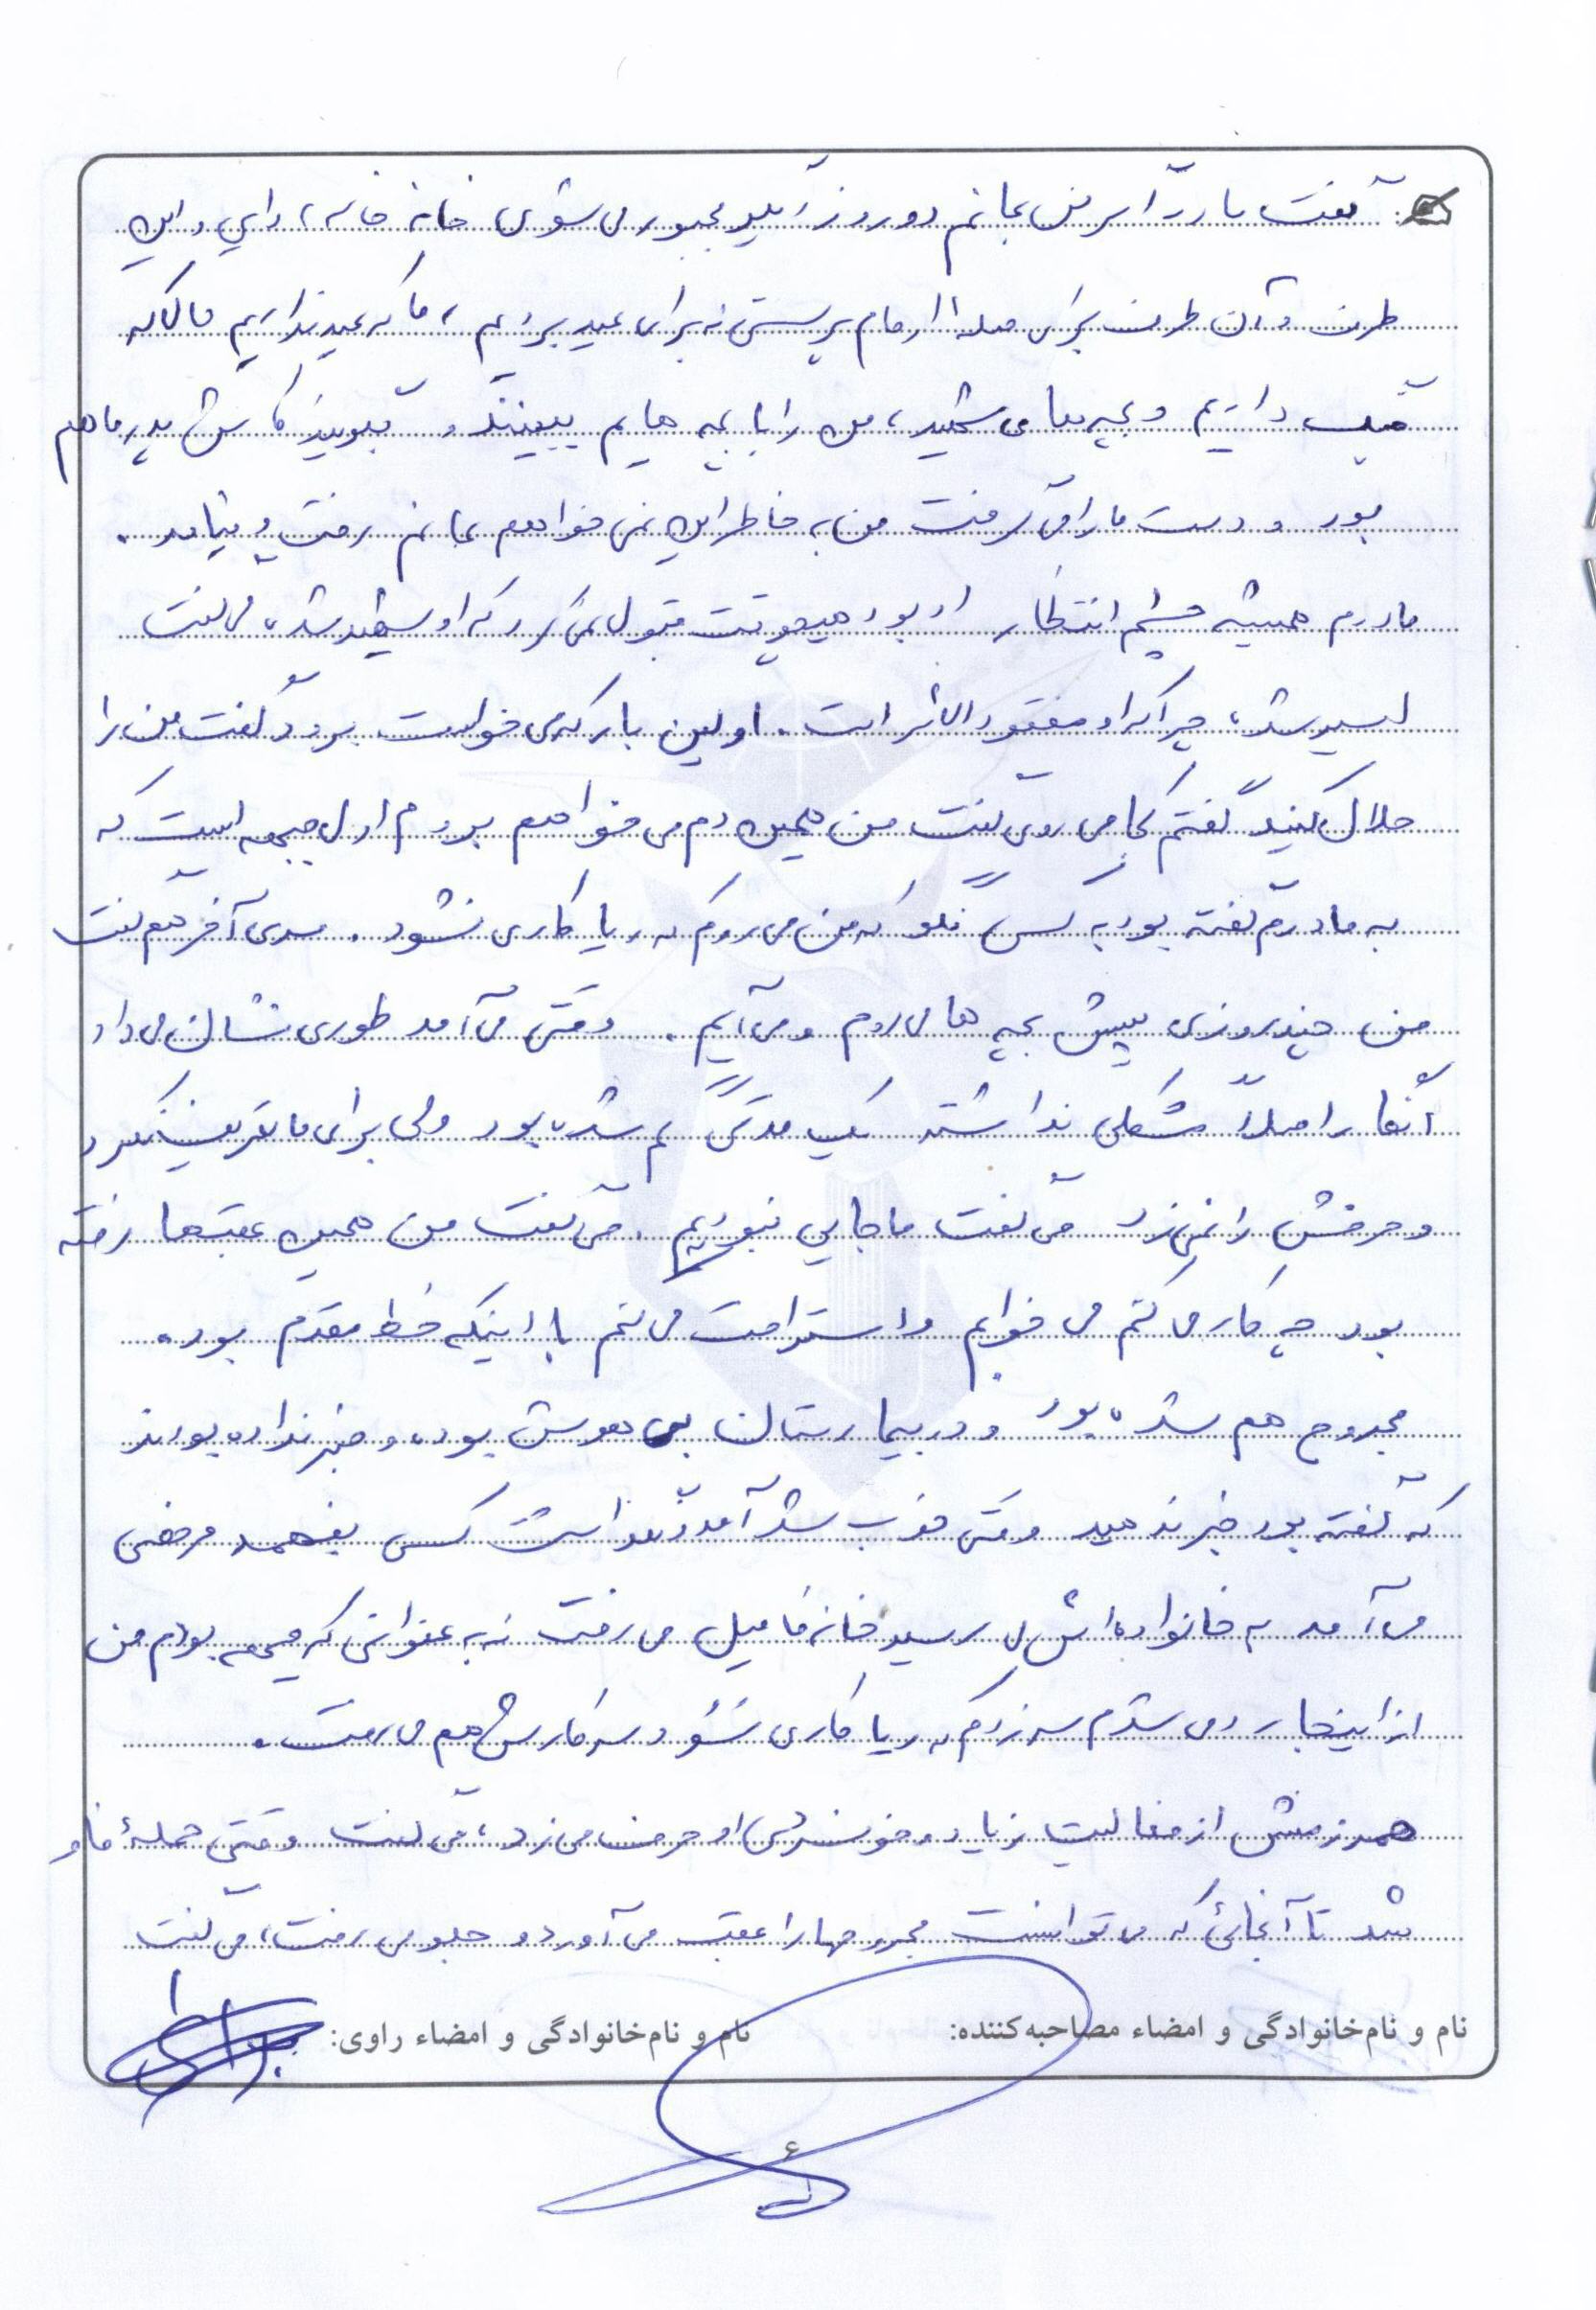 گفت مادر اگر من بمانم دو روز دیگر مجبور می شوی خانه خاله، دایی و این
طرف و آن طرف برای صله ارحام پرستی نه برای عید برویم، ما که عید نداریم ما لاله
داریم و بچه های شهید، من را با بچه هایم ببینند و بگویند کاش پدر ما هم
بود و دست ما را می گرفت من به خاطر این نمی خواهم بمانم رفت و نیامد.
مادرم همیشه چشم انتظار او بود هیچوقت قبول نمی کرد که او شهید شده، می گفت
اسیر شده، چرا که او مفقودالاثر است. اولین بار که می خواست برود گفت من را
حلال کنید گفتم کجا می روی گفت من همین دم می خواهم بروم اول جبهه است که
به مادرم گفته بود به کسی نگو که من می روم که ریا کاری نشود. سری آخر هم گفت
من چند روزی پیش بچه ها می روم و می آیم. وقتی می آمد طوری نشان می داد
آنجا اصلاً مشکلی نداشتند یک مدتی گم شده بود ولی برای ما تعریف نمیکرد
و حرفش را نمی زد می گفت ما جایی نبودیم. می گفت من همین عقبها رفته
بود چه کار می کنم می خوابم و استراحت می کنم با اینکه خط مقدم بود.
مجروح هم شده بود و در بیمارستان بی هوش بوده و خبر نداده بودند
که گفته بود خبر ندهید وقتی خوب شد آمد و نگذاشت کسی بفهمد مرخصی
می آمد به خانواده اش می رسید خانه فامیل می رفت نه به عنوانی که جبهه بودم من
از اینجا رد می شدم سر زدم که ریا کاری نشود سر کارش هم می رفت.
همرزمش از فعالیت زیاد و خونسردی او حرف می زد، می گفت وقتی حمله فاو
شد تا آنجائی که می توانست مجروحها را عقب می آورد و جلو می رفت، می گفت
نام و نام‌خانوادگی و امضاء مصاحبه‌کننده: نام و نام‌خانوادگی و امضاء راوی:
۶